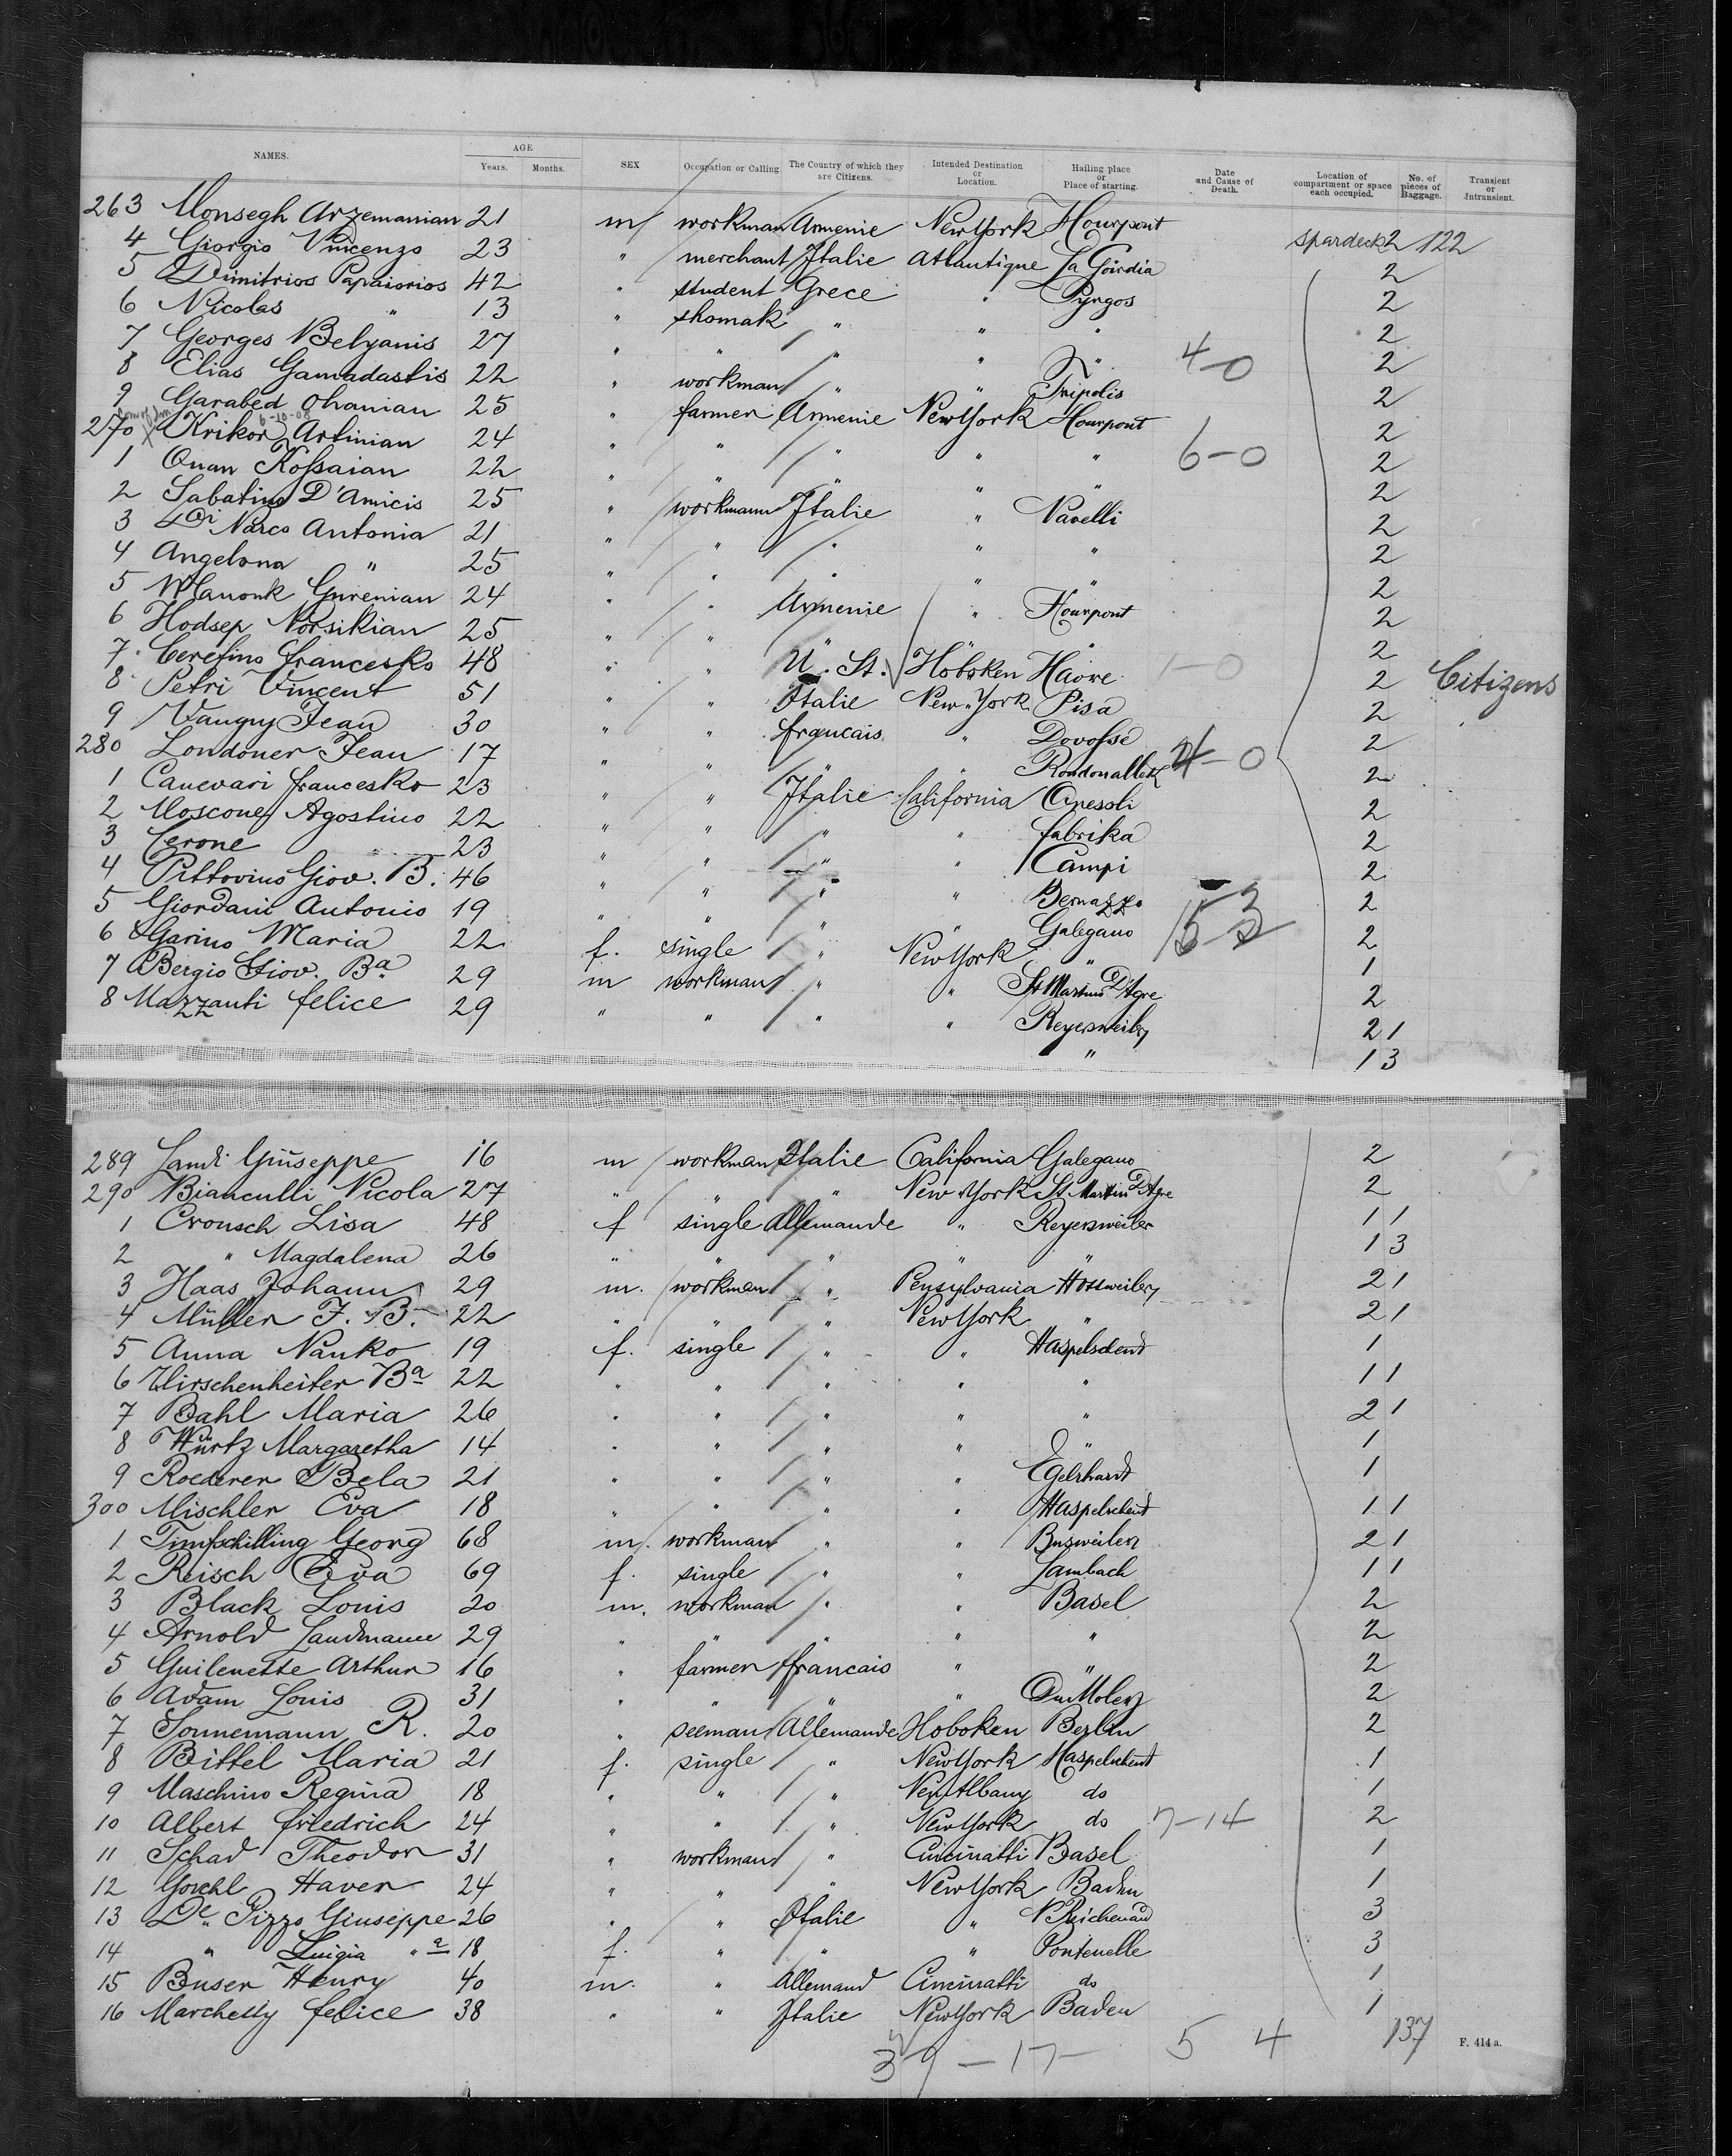 NAMES. AGE Years. Months. SEX Occupation or Calling. The Country of which they are Citizens. Intended Destination or Location. Hailing place or Place of starting. Date and Cause of Death. Location of compartment or space each occupied. No. of pieces of Baggage. Transient or Intransient.
263 Monsegh Arzemanian 21 m workman Armenie New York Hourpout Spardeck 2 122
4 Giorgio Vincenzo 23 " merchant Italie Atlantique La Goirdia 2
5 Dimitrios Papaiorios 42 " student Grece " Pyrgos 2
6 Nicolas " 13 " shomak " " " 2
7 Georges Belyanis 27 " " " " " 2
8 Elias Gamadastis 22 " workman " " Tripolis 4-0 2
9 Garabed Ohanian 25 " farmer Armenie New York Hourpout 2
270 Krikor Artinian 24 " " " " " 6-0 2
1 Ouan Kossaian 22 " " " " " 2
2 Sabatino D'Amicis 25 " workmann Italie " Navelli 2
3 Di Narco Antonia 21 " " " " " 2
4 Angelona " 25 " " " " " 2
5 Manouk Gurenian 24 " " Armenie " Hourpont 2
6 Hodsep Norsikian 25 " " " " " 2
7 Cerefino francesko 48 " " U. St. Hoboken Havre 1-0 2 Citizens
8 Petri Vincent 51 " " Italie New-York Pisa 2
9 Vaugny Jean 30 " " francais " Dovosse 2
280 Londoner Jean 17 " " " " 4-0 2
1 Canevari francesko 23 " " Italie California Oressli 2
2 Moscone Agostino 22 " " " " fabrika 2
3 Cerone " 23 " " " " Campi 2
4 Pittovino Giov. B. 46 " " " " Bernazzo 2
5 Giordani Antonio 19 " " " " Galegano 2
6 Garino Maria 22 f. single " New York " 1
7 Bergio Giov. Ba 29 m workman " " St Martino D'Agre 2
8 Mazzanti felice 29 " " " " Reyersweiler 2 1
" 1 3
289 Landi Giuseppe 16 m workman Italie California Galegano 2
290 Bianculli Nicola 27 " " " New York St Martin D'Agre 2
1 Cronsch Lisa 48 f single Allemande " Reyersweiler 1 1
2 " Magdalena 26 " " " " " 1 3
3 Haas Johann 29 m. workman " Pensylvania Hossweiler 2 1
4 Müller J. B. 22 " " " New York " 2 1
5 Anna Nanko 19 f. single " " Haspelscheid 1
6 Hirschenheiter Ba 22 " " " " " 1 1
7 Bahl Maria 26 " " " " " 2 1
8 Würtz Margaretha 14 " " " " " 1
9 Roederer Bela 21 " " " " Egelshardt 1
300 Mischler Eva 18 " " " " Haspelscheid 1 1
1 Timpschilling Georg 68 m. workman " " Busweiler 2 1
2 Reisch Eva 69 f. single " " Lambach 1 1
3 Black Louis 20 m. workman " " Basel 2
4 Arnold Landmann 29 " " " " " 2
5 Guilenette Arthur 16 " farmer francais " " 2
6 Adam Louis 31 " " " " 2
7 Sonnemann R. 20 " seeman Allemande Hoboken Berlin 2
8 Bittel Maria 21 f. single " New York Haspelscheid 1
9 Maschino Regina 18 " " " New Albany do 1
10 Albert friedrich 24 " " " New York do 7-14 2
11 Schad Theodor 31 " workman " Cincinatti Basel 1
12 Gorchl Haver 24 " " " New York Baden 1
13 De Pizzo Giuseppe 26 " " Italie " Reichenau 3
14 " Luigia " a 18 f. " " " Pontenelle 3
15 Buser Henry 40 m. " Allemand Cincinatti do 1
16 Marchetty felice 38 " " Italie New York Baden 1
39-17 5 4 137 F. 414 a.